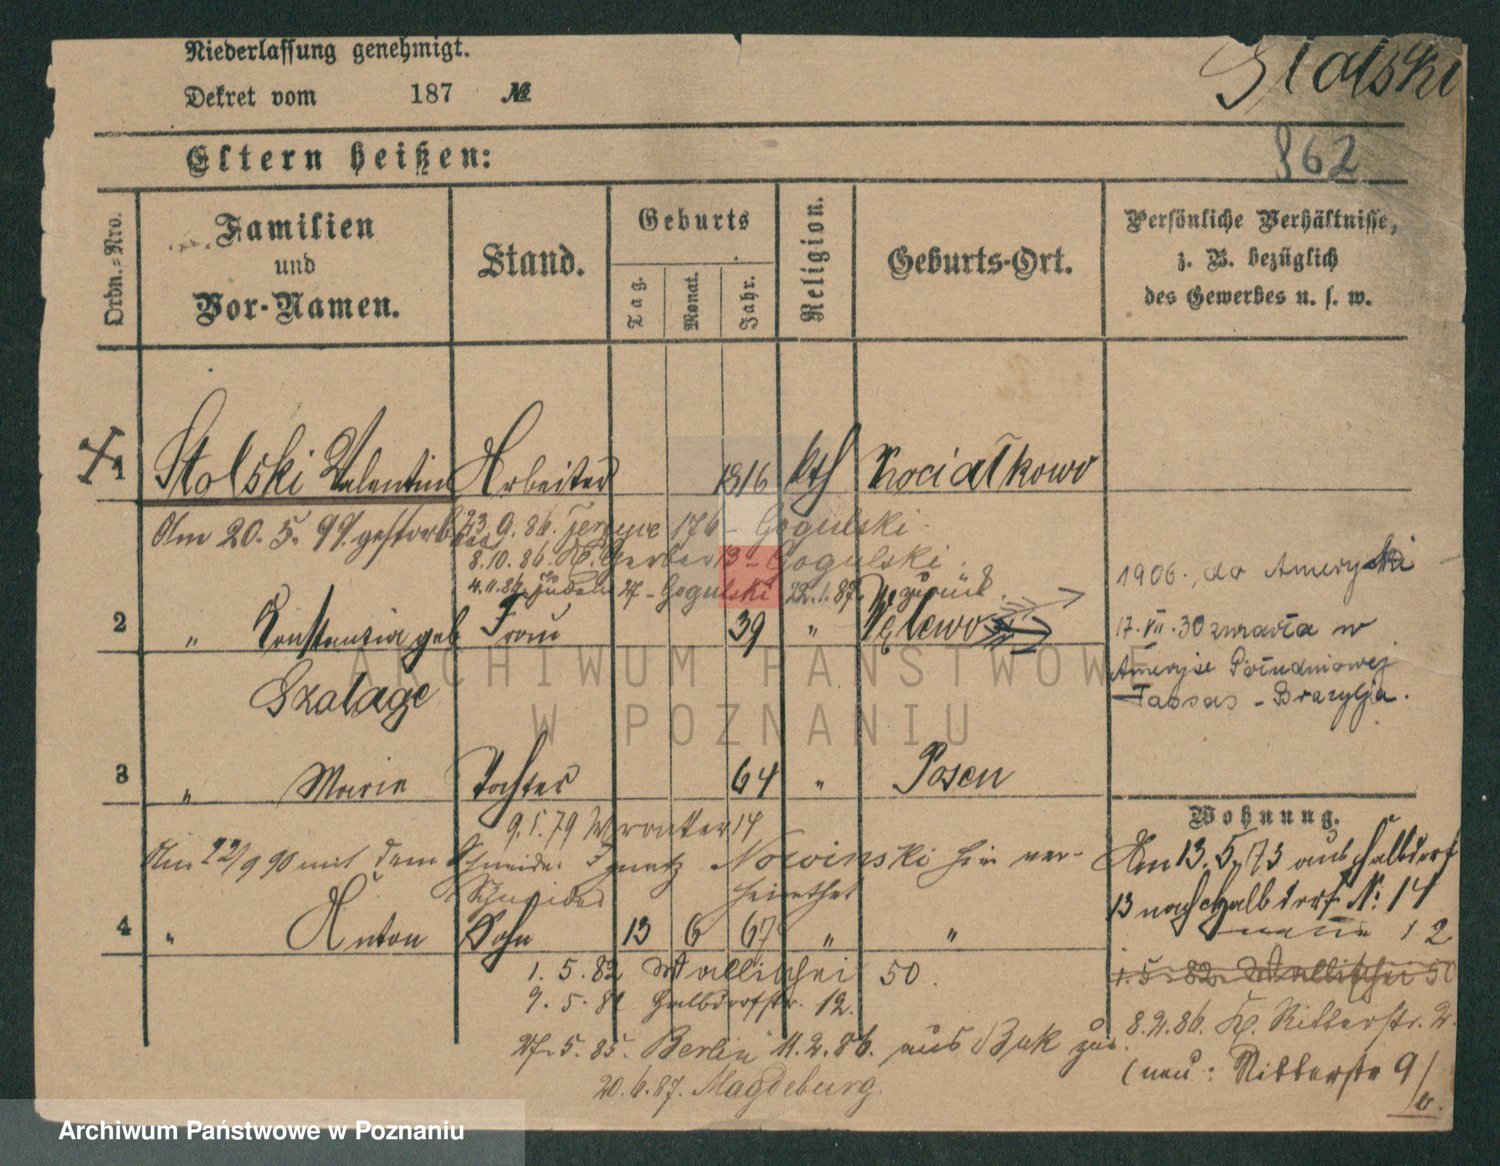 Niederlassung genehmigt.
Dekret vom 187 №
Stolski
862
Eltern heißen:
Ordn.-Nro.
Familien und Vor-Namen.
Stand.
Geburts
Tag.
Monat.
Jahr.
Religion.
Geburts-Ort.
Persönliche Verhältnisse, z. B. bezüglich des Gewerbes u. s. w.
1 Stolski Valentin Arbeiter 1816 kth Kociałkowo
Am 20. 5. 99. gestorben
23. 9. 86. 176 - Gogulski.
8. 10. 86. Gr. Gerber 13 - Gogulski.
4. 11. 86. Juden 27 - Gogulski 22. 1. 87. zurück.
2 " Constanzia geb Frau 39 " 
Szalage
1906. do Ameryki
17. VII. 30 w
Ameryce Południowej
- Brazylja.
3 " Marie Tochter 64 " Posen
9. 1. 79 Wronker 17
Am 22/9 90 mit dem Schneider Ignatz Nowinski hier ver-
Schneider heirathet
4 " Anton Sohn 13 6 67 " "
1. 5. 82 Wallischei 50.
9. 5. 82 Halbdorfstr. 12.
27. 5. 85. Berlin 11. 2. 86. aus Buk zur.
20. 6. 87. Magdeburg.
Wohnung.
Am 13. 5. 73 aus Halbdorf
13 nach Halbdorf N: 14
12
1. 5. 82. Wallischei 50
8. 2. 86. Kl. Ritterstr. 2.
(neu: Ritterstr 9/
ARCHIWUM PAŃSTWOWE
W POZNANIU
Archiwum Państwowe w Poznaniu